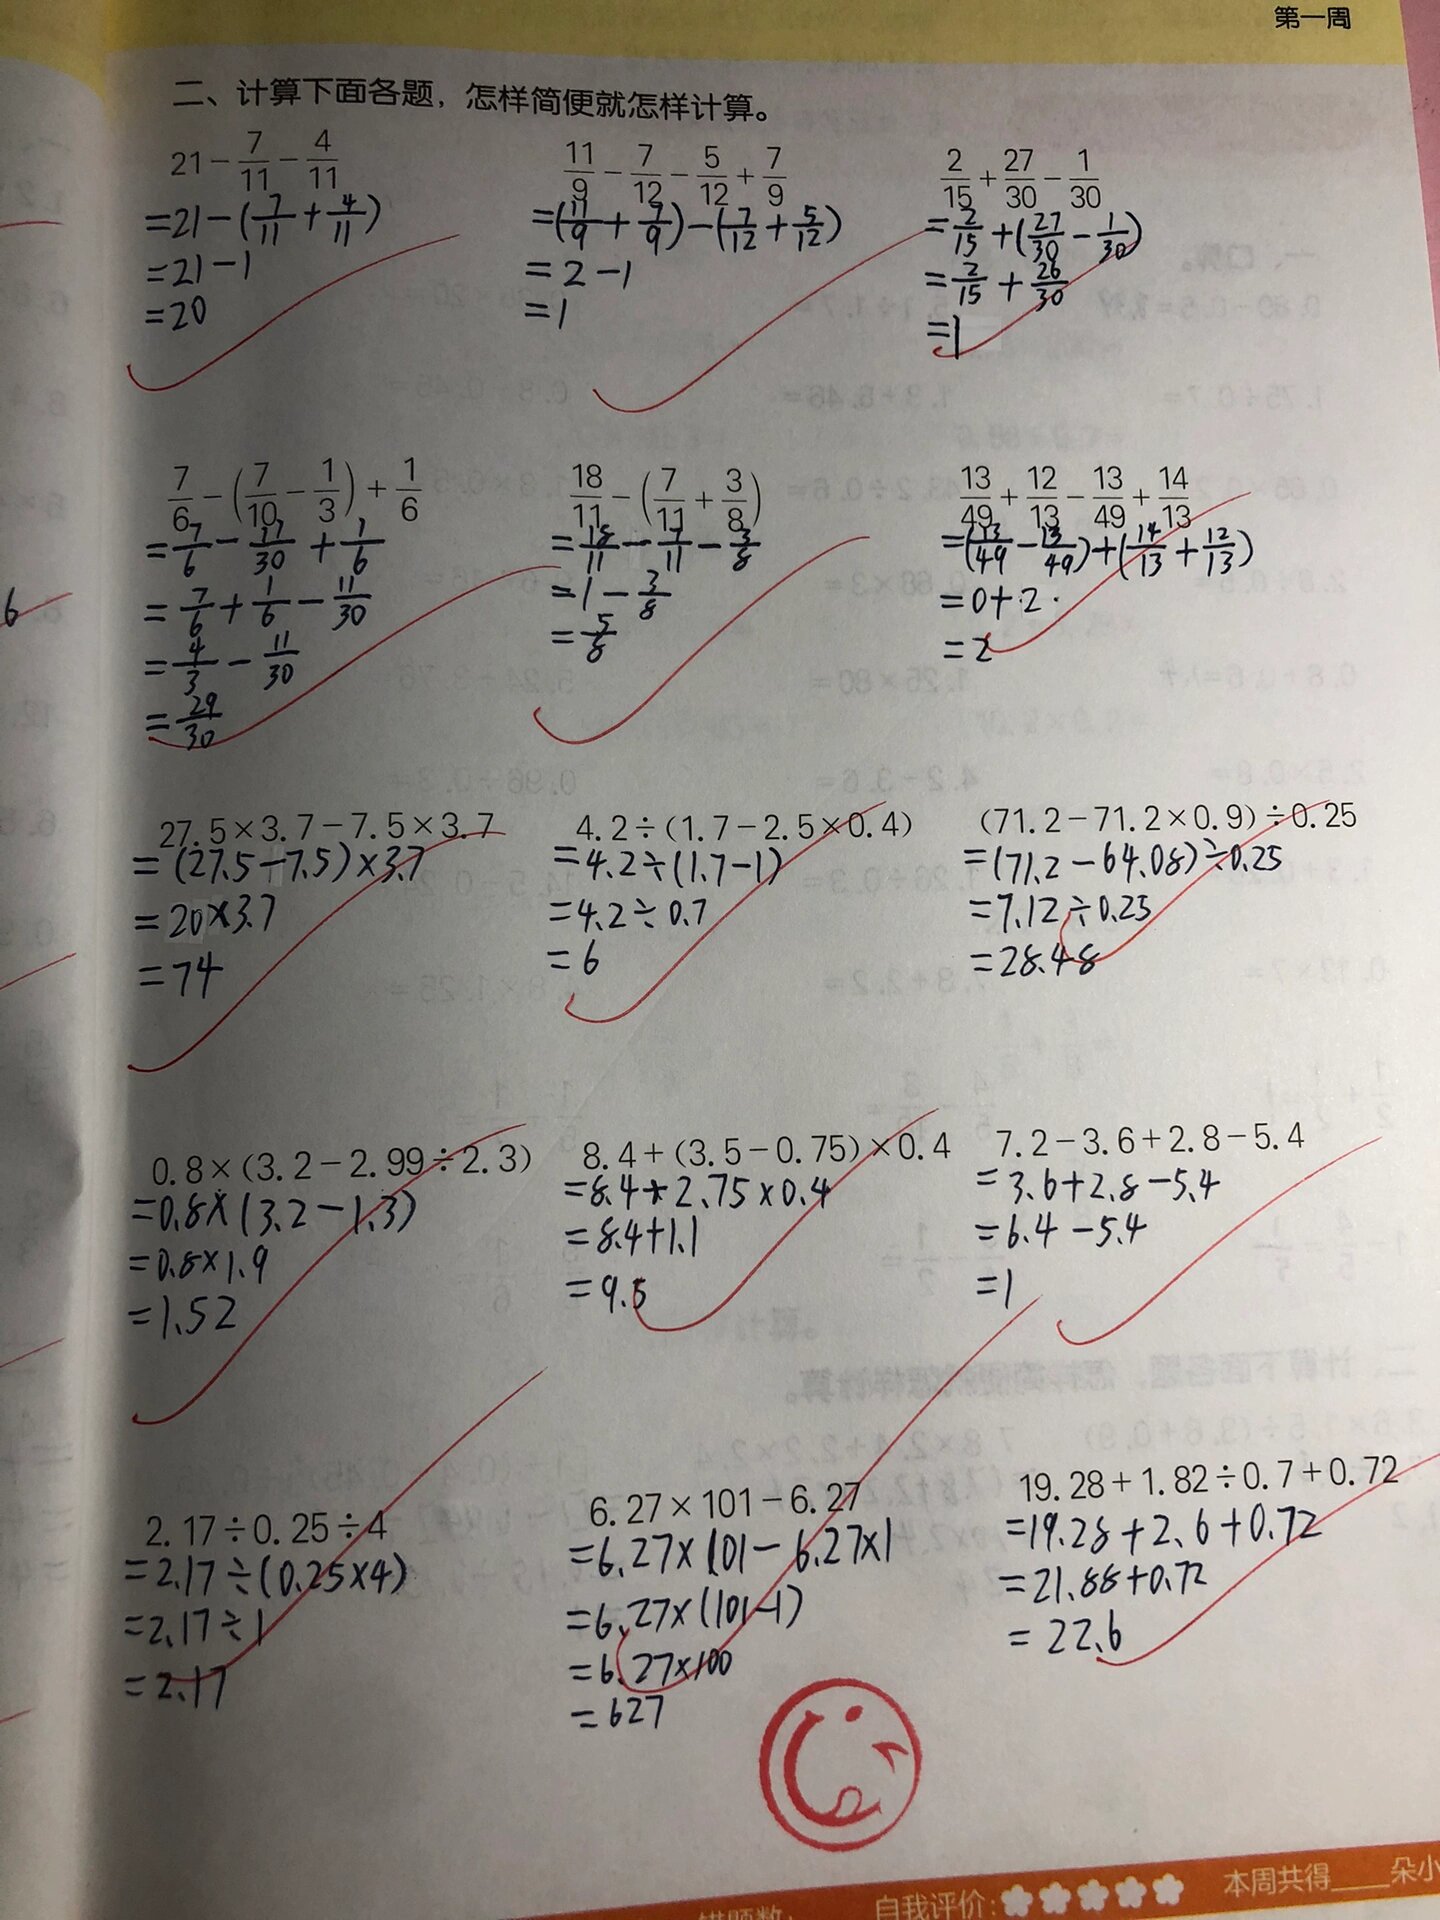 第一周
二、计算下面各题，怎样简便就怎样计算。
21－7/11－4/11
=21－(7/11+4/11)
=21－1
=20
11/9－7/12－5/12+7/9
=(11/9+7/9)－(7/12+5/12)
=2－1
=1
2/15+27/30－1/30
=2/15+(27/30－1/30)
=2/15+26/30
=1
7/6－(7/10－1/3)+1/6
=7/6－11/30+1/6
=7/6+1/6－11/30
=4/3－11/30
=29/30
18/11－(7/11+3/8)
=18/11－7/11－3/8
=1－3/8
=5/8
13/49+12/13－13/49+14/13
=(13/49－13/49)+(14/13+12/13)
=0+2
=2
27.5×3.7－7.5×3.7
=(27.5－7.5)×3.7
=20×3.7
=74
4.2÷(1.7－2.5×0.4)
=4.2÷(1.7－1)
=4.2÷0.7
=6
(71.2－71.2×0.9)÷0.25
=(71.2－64.08)÷0.25
=7.12÷0.25
=28.48
0.8×(3.2－2.99÷2.3)
=0.8×(3.2－1.3)
=0.8×1.9
=1.52
8.4+(3.5－0.75)×0.4
=8.4+2.75×0.4
=8.4+1.1
=9.5
7.2－3.6+2.8－5.4
=3.6+2.8－5.4
=6.4－5.4
=1
2.17÷0.25÷4
=2.17÷(0.25×4)
=2.17÷1
=2.17
6.27×101－6.27
=6.27×101－6.27×1
=6.27×(101－1)
=6.27×100
=627
19.28+1.82÷0.7+0.72
=19.28+2.6+0.72
=21.88+0.72
=22.6
自我评价：
本周共得____朵小